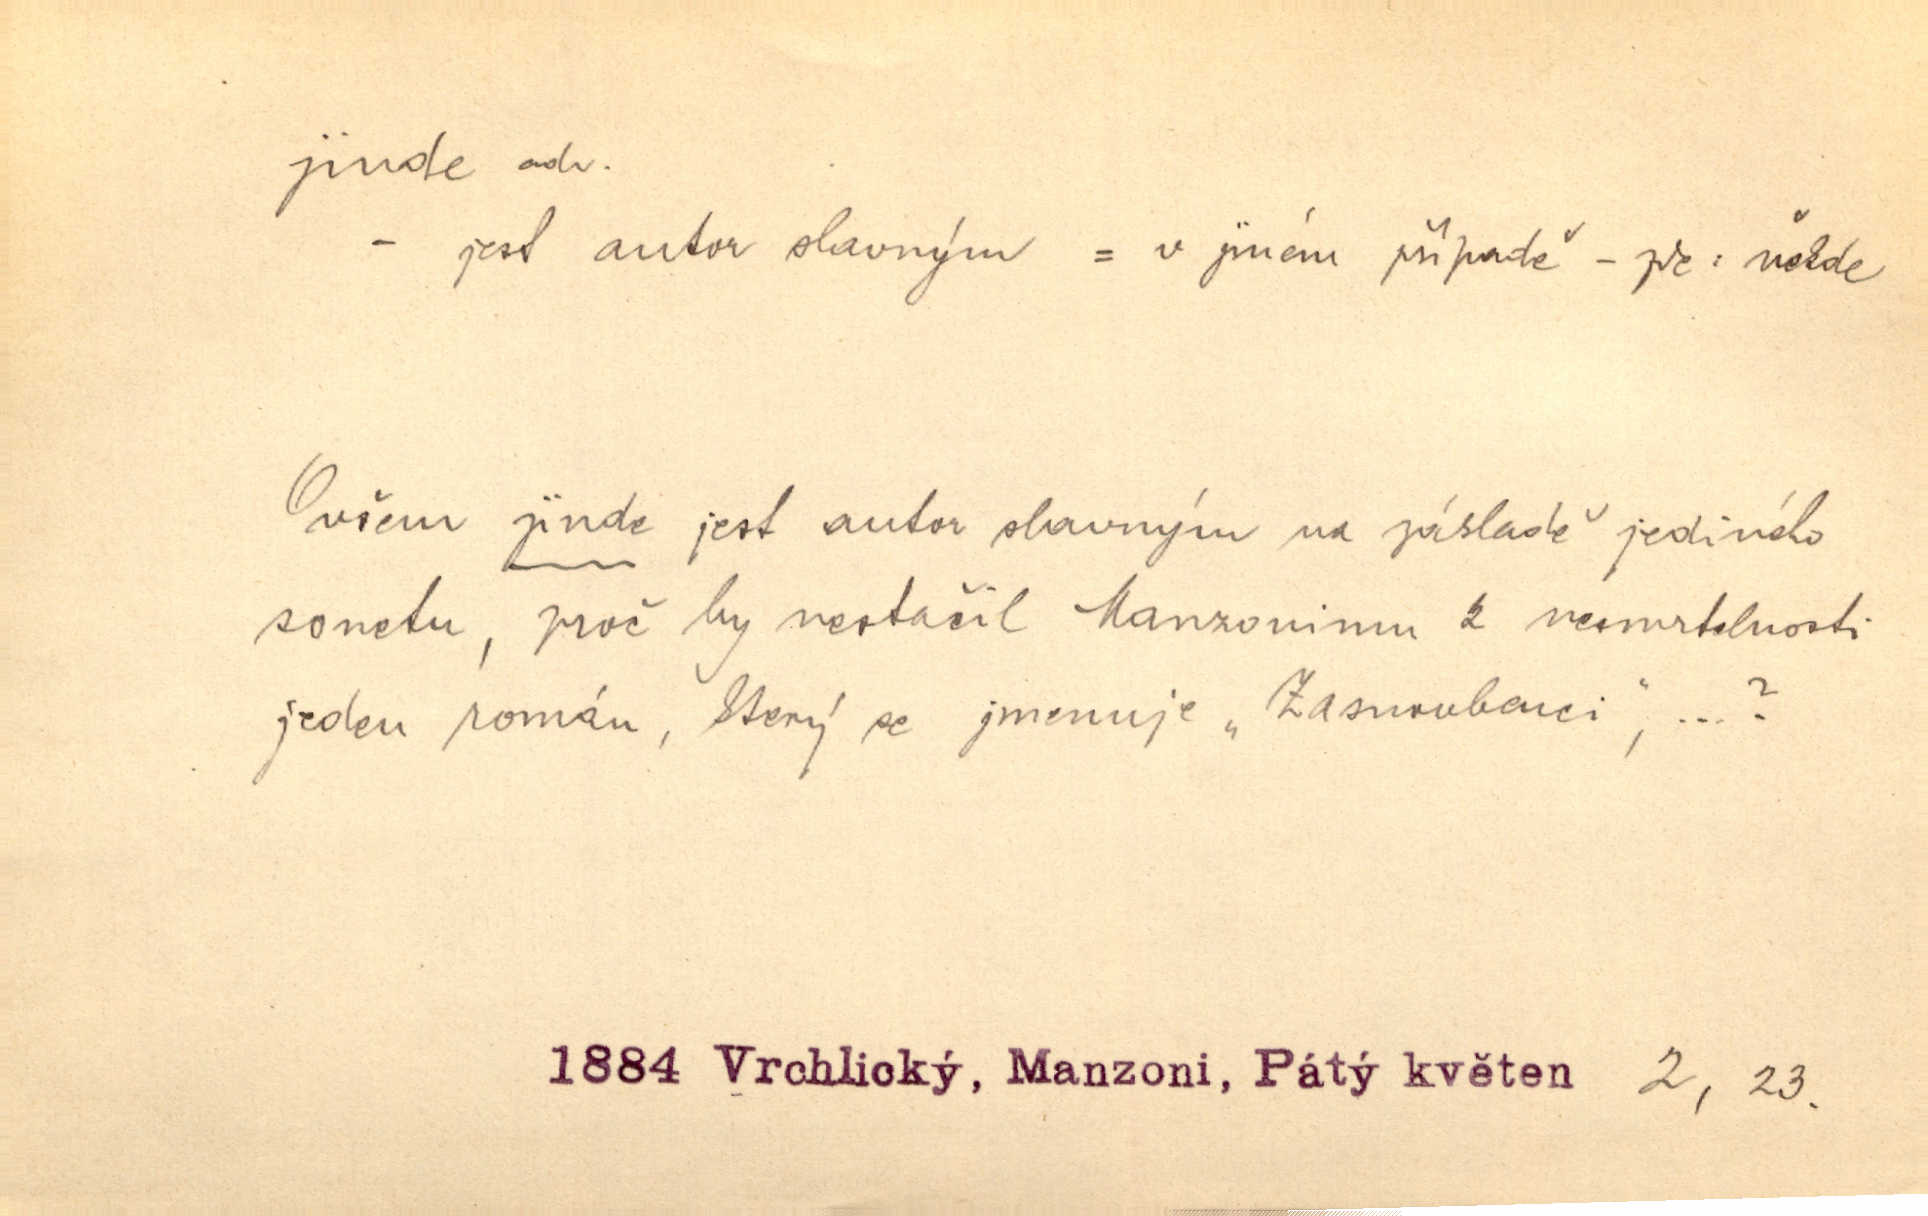 jinde adv.
- jest autor slavným = v jiném případě - př:
Ovšem jinde jest autor slavným na základě jediného
sonetu, proč by nestačil Manzonimu k nesmrtelnosti
jeden román, který se jmenuje „Zasnoubenci“, ...?
1884 Vrchlický, Manzoni, Pátý květen 2, 23.